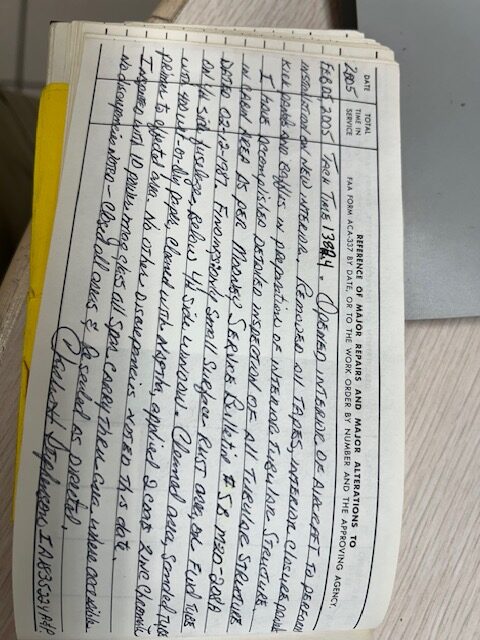 DATE
TOTAL TIME IN SERVICE
REFERENCE OF MAJOR REPAIRS AND MAJOR ALTERATIONS TO
FAA FORM ACA-337 BY DATE, OR TO THE WORK ORDER BY NUMBER AND THE APPROVING AGENCY.
2005
Feb 05, 2005 Tach Time 1388.4. Opened interior of aircraft to perform
installation on new interior. Removed all tapes, interior closure panels
kick panels and baffles in preparation of interior tubular structure
I have accomplished detailed inspection of all tubular structure
in cabin area as per Mooney Service Bulletin # SB M20-208A
dated 02-12-87. Findings only small surface rust area, on fwd tube
on side fuselage, below side window. Cleaned area, sanded tube
with 400 wet-or-dry paper, cleaned with naptha, applied 2 coats zinc chromate
primer to affected area. No other discrepancies noted this date.
I inspected with 10 power mag glass all spar carry thru cap where accessible
no discrepancies noted - closed all areas & resealed as directed.
IA 1835224 A&P